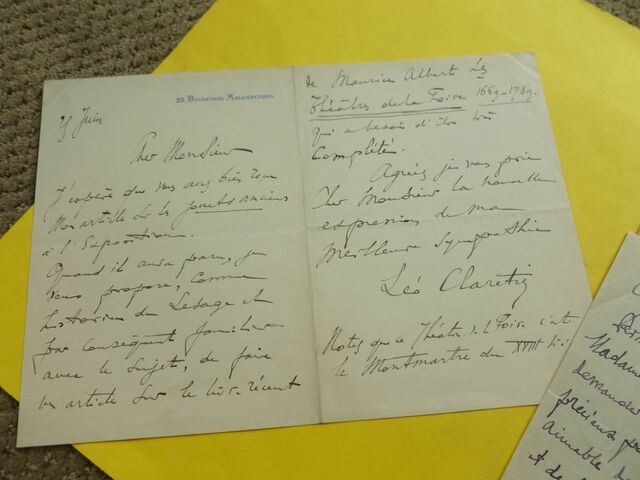 25 BOULEVARD MALESHERBES
Juin
Cher Monsieur
J'espère que vous avez bien reçu
mon article sur les jouets anciens
à l'Exposition.
Quand il aura paru, je
vous propose, comme
historien du Lesage et
par conséquent familier
avec le sujet, de faire
un article sur le livre récent
de Maurice Albert Les
Théâtres de la Foire 1660-1789.
qui a besoin d'être très
complété.
Agréez je vous prie
Cher Monsieur la nouvelle
expression de ma
meilleure sympathie
Léo Claretie
Notez que ce Théâtre de la Foire c'est
le Montmartre du XVIII
Madame
demander
précieux
aimable
et de